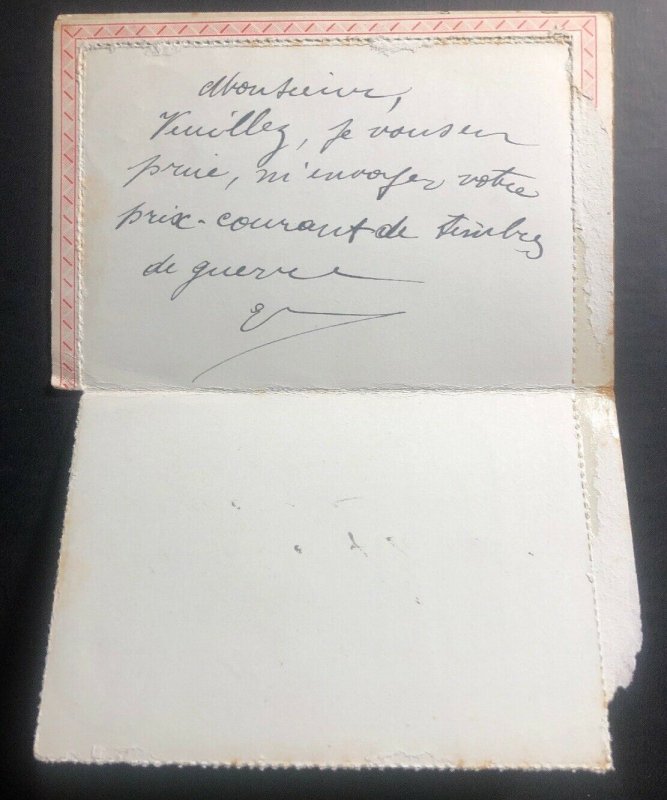 Monsieur,
Veuillez, je vous en
prie, m'envoyer votre
prix-courant de timbres
de guerre